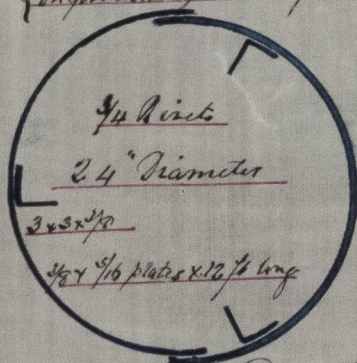 3/4 Rivets
24" Diameter
3x3x3/8
3/8 & 5/16 plates x 12/6 long